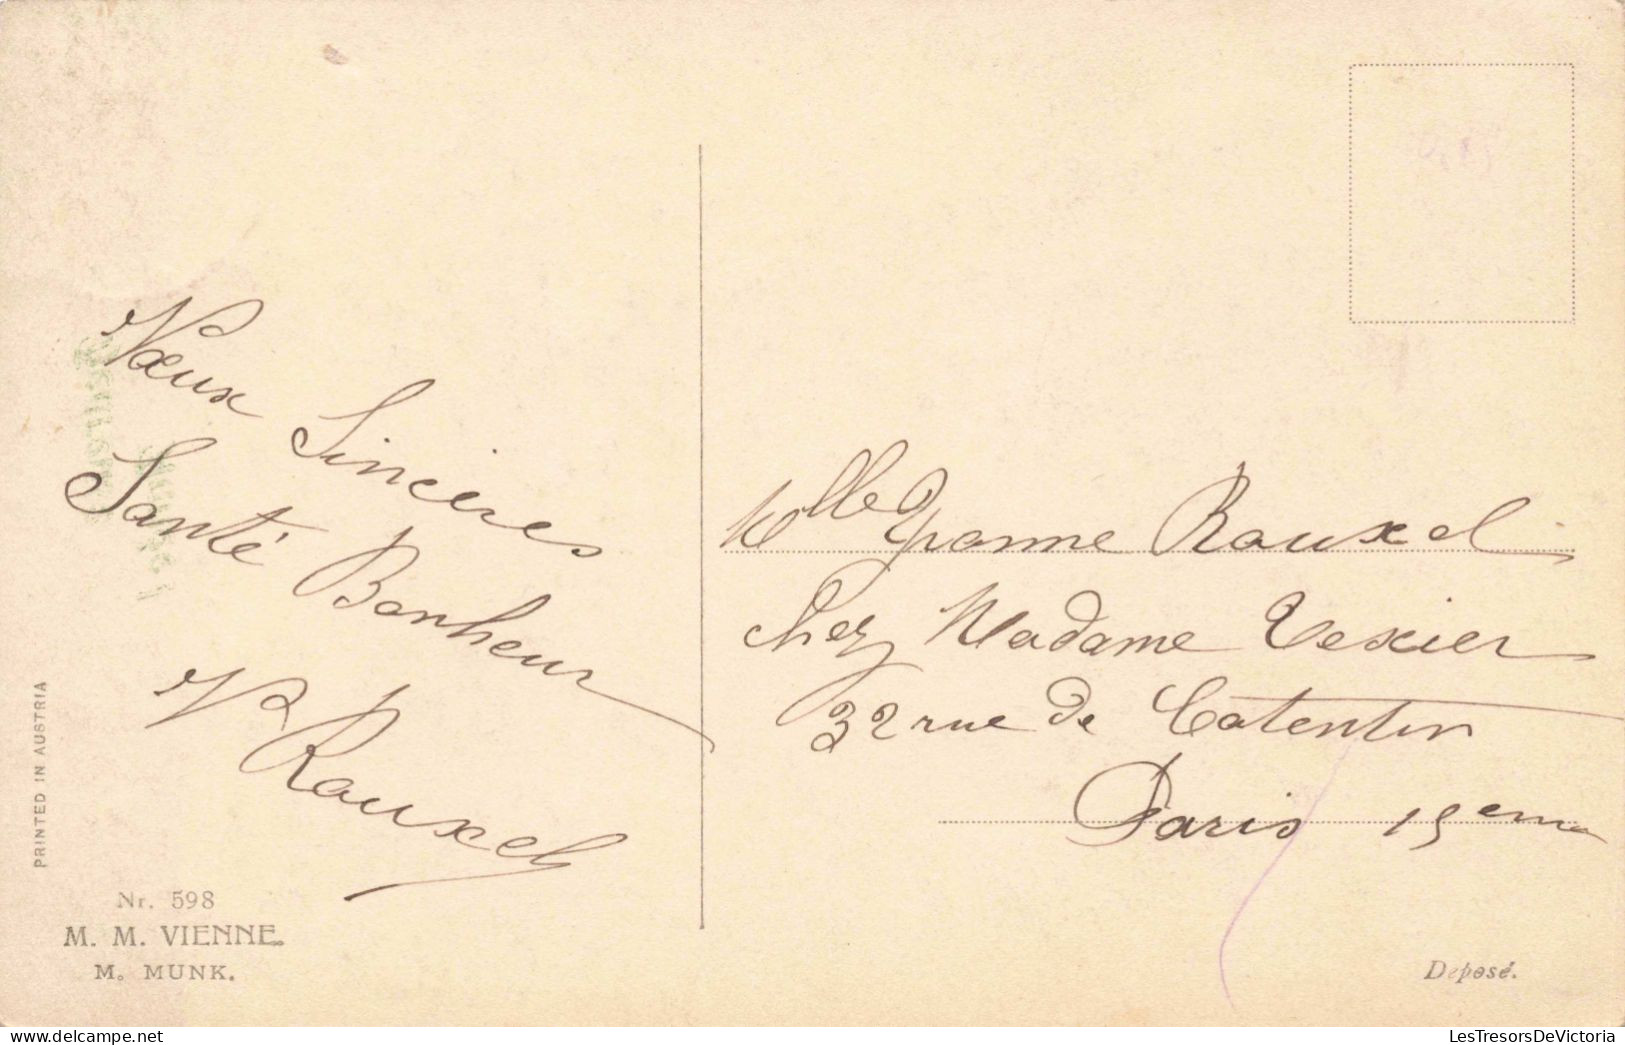 Vœux Sincères
Santé Bonheur
V Rouxel
PRINTED IN AUSTRIA
Nr. 598
M. M. VIENNE.
M. MUNK.
Mlle Yvonne Rouxel
chez Madame Texier
32 rue de Cotentin
Paris 15eme
Deposé.
LesTresorsDeVictoria